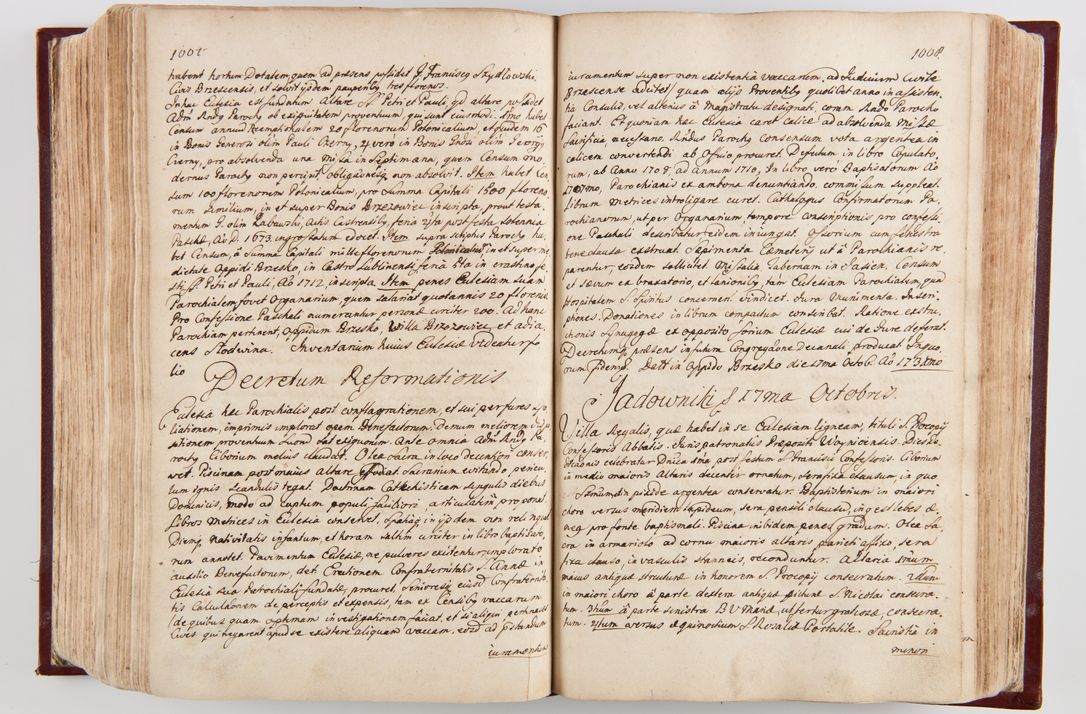 1007
habent hortum Dotalem, quem ad præsens possidet F. Francisco Szydłowski
Civis Brzescensis, et solvit ijsdem pauperiby tres florenos.
In hac Ecclesia est fundatum Altare SS. Petri et Pauli, qd altare possidet
Adm Rndy Parochy ob exiguitatem proventuum, qui sunt eiusmodi. Imo habet
Censum annuū Reemptionalem 20 florenorum Polonicalium, et quidem 16
in Bonis Generosi olim Pauli Czerny, 4 vero in Bonis Gndsi olim Georgij
Czerny, pro absolvenda una Missa in Septimana, quem Censum mo,
dernus Parochy non percipit, obligationesq non absolvit. Item habet Cen
sum 100 florenorum Polonicalium, pro Summa Capitali 1500 floreno
rum similium, in et super Bonis Brzezowiec inscripta, prout testa,
mentum
Paschæ, A D. 1673 ingrossatum edocet. Item supra scriptus Parochy ha,
bet Censum, à Summa Capitali mille florenorum Polonicalium in et super præ,
dictate Oppidi Brzesko, in Castro Lublinensi feria 4ta in crastino fe,
sti SS. Petri et Pauli, Ao 1712, inscripta. Item penes Ecclesiam suam
Parochialem, fovet Organarium, quem salariat quotannis 20 florenis.
Pro Confessione Paschali numerantur personæ circiter 200. Ad hanc
Parochiam pertinent, Oppidum Brzesko, Villa Brzezowiec, et adia,
cens Słodwina. Inventarium huius Ecclesiæ videatur fo
lio
Decretum Reformationis
Ecclesia hæc Parochialis post conflagrationem, et sui per fures spo,
liationem, imprimis implorat opem Benefactorum. Demum meliorem
sationem proventuum suorum sat exiguorum. Ante omnia Adm Rndy Pa
rochy Ciborium melius claudat. Olea sacra in loco decentiori conser,
vet. Piscinam post maius Altare effodiat. Sacrarium evitando pericu,
lum ignis scandulis tegat. Doctrinam Cathechisticam singulis diebus
Dominicis, modo ad captum populi faciliori, articulatim proponat
Libros Metrices in Ecclesia conservet. Spatiaq in ijsdem non relinquat
Diemq nativitatis infantum, et horam saltim circiter in libro Baptizato,
rum annotet. Pavimentum Ecclesiæ, ne pulveres excitentur, implorato
auxilio Benefactorum, det. Erectionem Confraternitatis S. Annæ in
Ecclesia sua Parochiali fundatæ, procuret, Senioresq eiusd Confraterni,
tis Calculationem de perceptis et expensis, tam ex Censiby vaccarum
de quibus quam optimam investigationem faciat, et si aliqui pertinaces
Cives qui negarent apud se existere aliquam vaccam, eosd ad præstandum
iuramentum
1008
iuramentum super non existentia vaccarum, ad Iudicium Civile
Brzescense adcitet, quam aliji Proventiby quotlibet anno in assisten,
tia Consulis, vel alterius à Magistratu designati, coram Rndo Parocho
faciant. Et quoniam hæc Ecclesia caret calice ad absolvenda Missæ
Sacrificia necessario, Rndus Parochy Consensum vota argentea in
calicem convertendi, ab Officio procuret. Defectum in libro Copulato,
rum, ab Anno 1708, ad Annum 1710, In libro verò Baptizatorum Ao
1707mo, Parochianis ex ambona denuntiando, commissum suppleat,
librum metrices introligare curet. Cathalogus Confirmatorum Pa,
rochianorum, ut per Organarium, tempore conscriptionis pro confessi
one Paschali describatur, eidem iniungat. Ossorium cum fenestra
bene clausa exstruat. Sepimenta Cæmeterij ut à Parochianis re,
parentur, eosdem sollicitet. Missalia, Tabernam in Jasien, Censum
et sævum ex brasatorio, et lanioniby, tàm Ecclesiam Parochialem, quàm
Hospitalem S. Spiritus concernens vindicet. Iura Munimenta, Inscri,
ptiones, Donationes in librum compactum conscribat. Ratione exstru,
ctionis Synagogæ ex opposito fori Ecclesiæ cui de Iure deferat.
Decretumq præsens in futura Congregatione Decanali producat. In quo,
rum fidem. Datt in Oppido Brzesko die 17ma Octob. Ao 173
Jadowniki d 17ma Octobris.
Villa Regalis, quæ habet in se Ecclesiam ligneam, tituli S. Procopij
Confessoris Abbatis. Iuris patronatûs Præpositi Woyniciensis. Dies De
dicaōnis celebratur Dnica 1ma post festum S. Francisci Confessoris. Ciborium
in medio maioris Altaris decenter ornatum, serâq fixâ clausum, in quo
S Smum in pixide argentea conservatur. Baptisterium in maiori
choro versus meridiem lapideum, sera pensili clausū, in q est lebes æ,
neq pro fonte baptismali. Piscina in ibidem penes gradum. Olea Sa
cra in armariolo ad cornu maioris altaris parieti affixo, sera
fixa clauso, in vasculis stanneis, reconduntur. Altaria Imum
maius antiquæ structuræ in honorem S. Procopij consecratum. 2dum
in maiori choro à parte dextera antiquæ picturæ S. Nicolai consecra,
tum. 3tium à parte sinistra B V Mariæ, ut fertur gratiosæ, consecra
tum. 4tum versus æquinoctium S. Rosaliæ Portatile. Sacristia in
minori